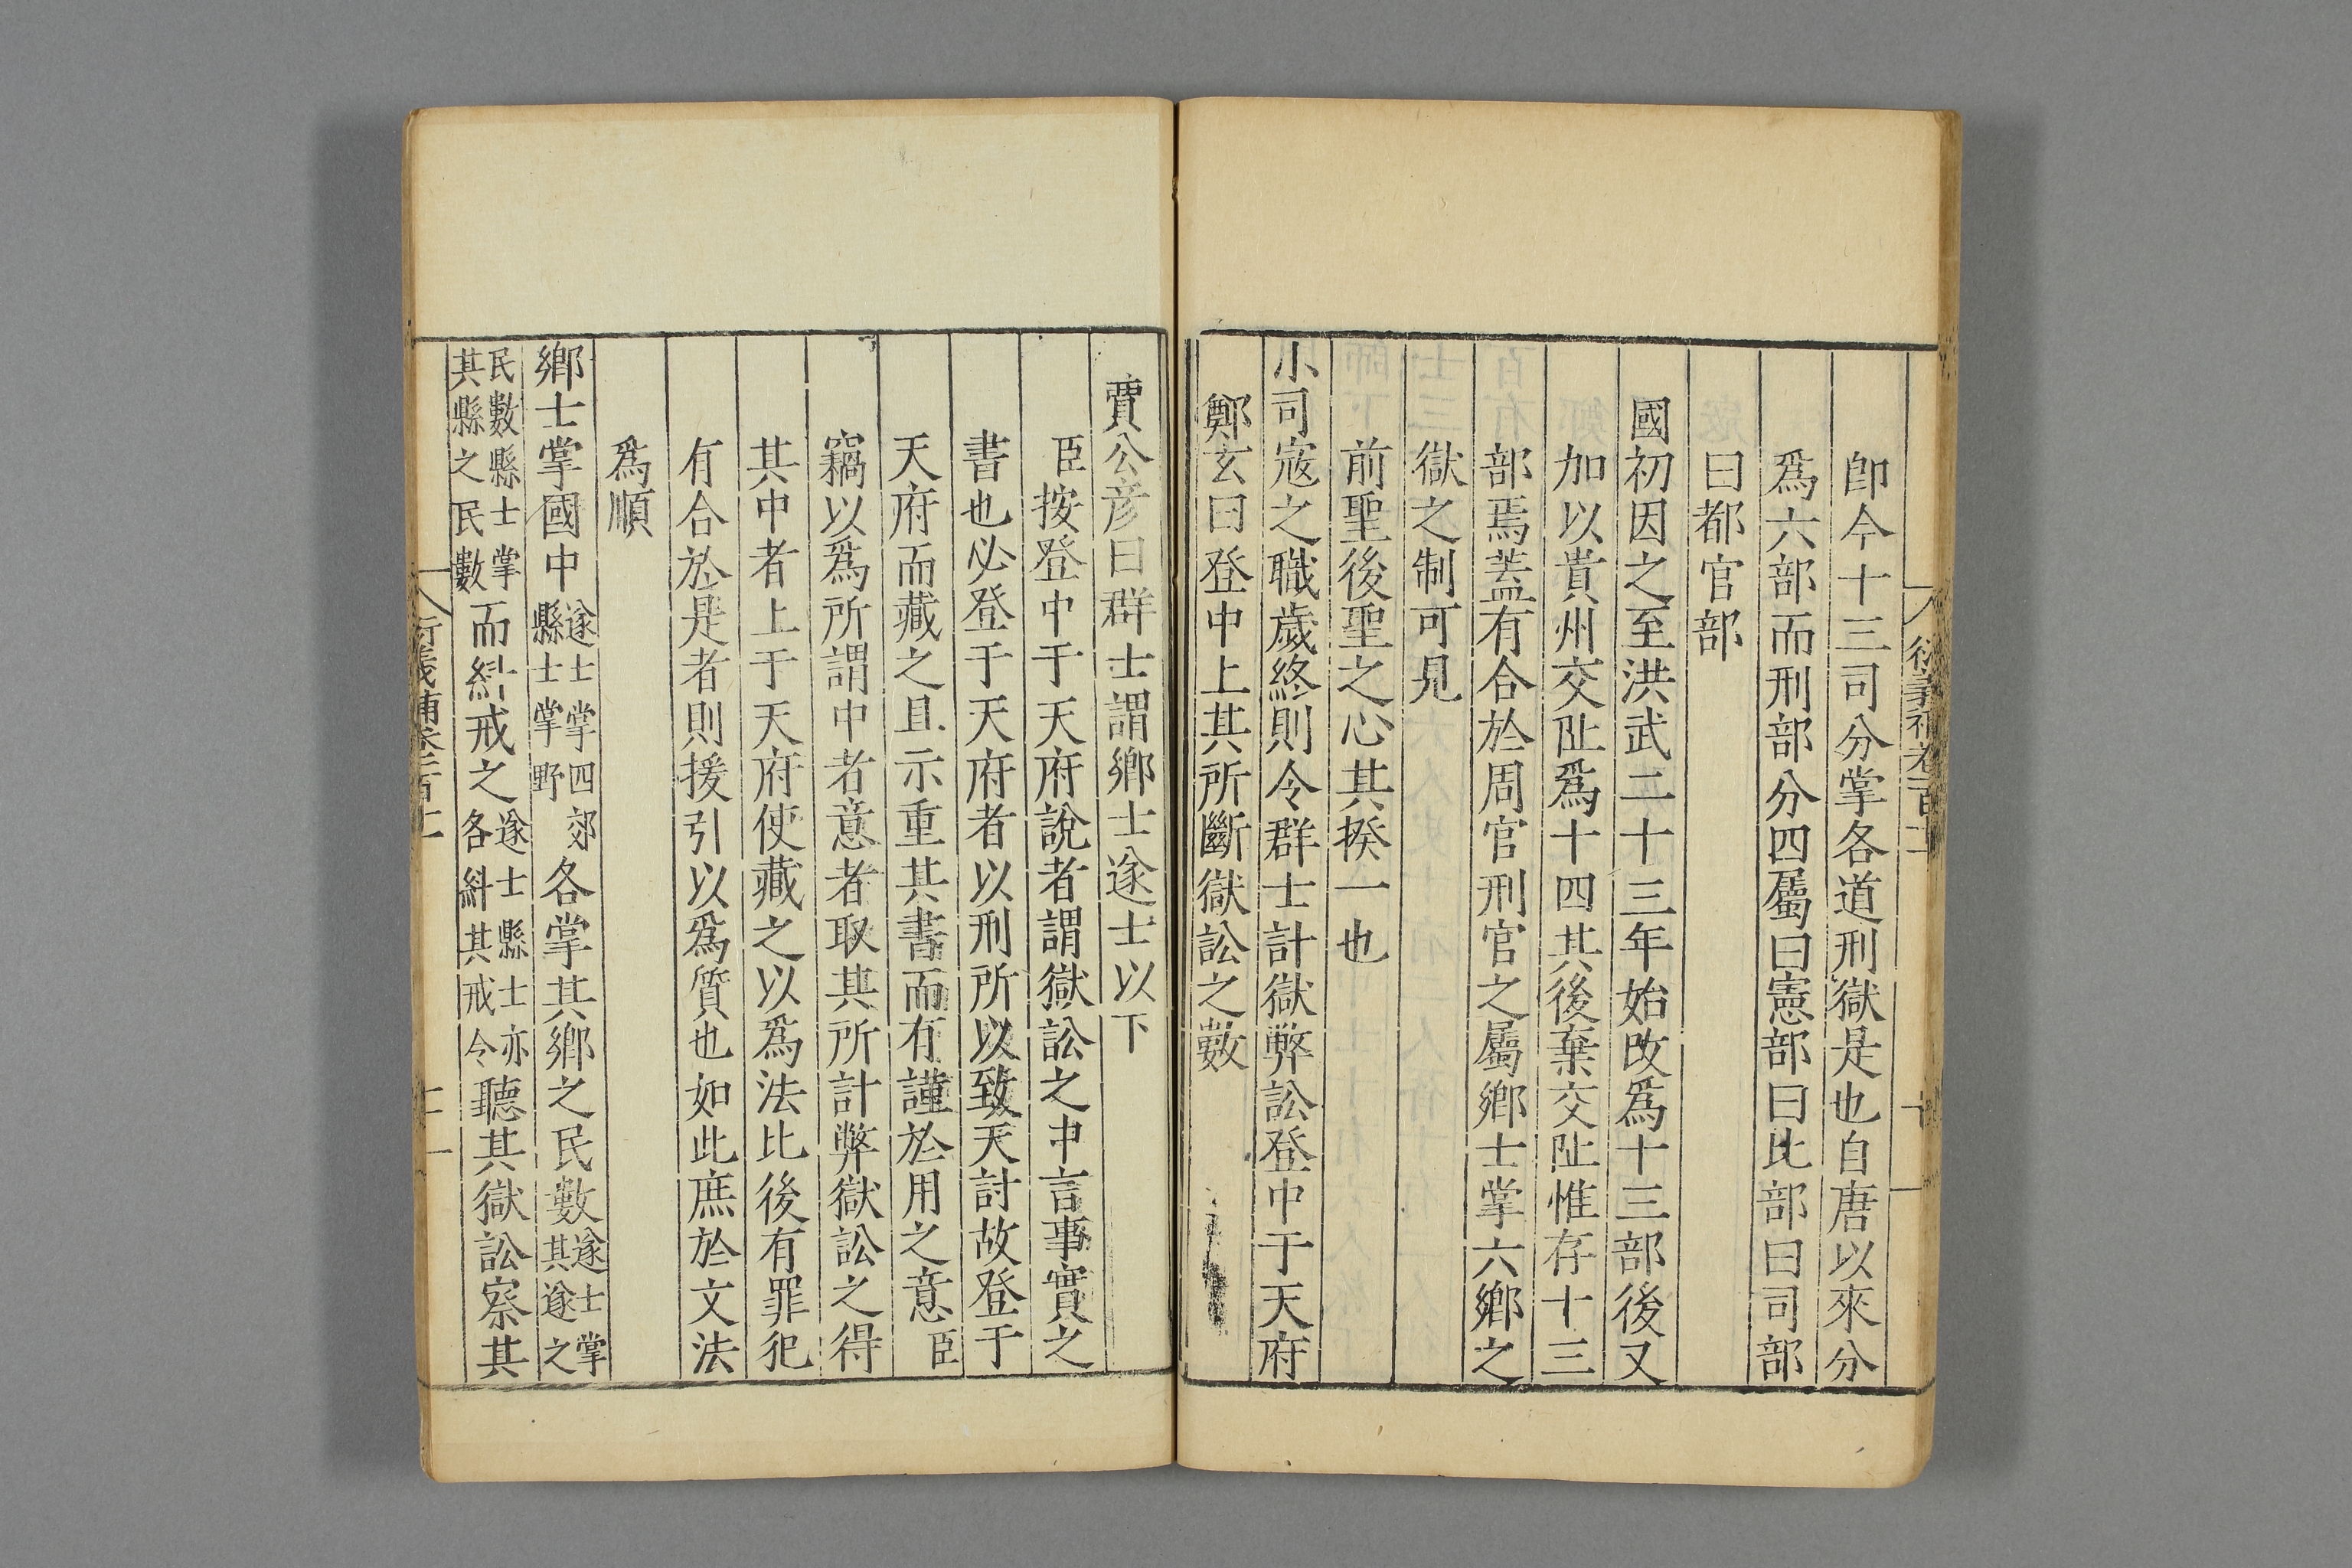 即今十三司分掌各道刑獄是也自唐以來分
爲六部而刑部分四屬曰憲部曰比部曰司部
曰都官部
國初因之至洪武二十三年始改爲十三部後又
加以貴州交阯爲十四其後棄交阯惟存十三
部焉蓋有合於周官刑官之屬鄉士掌六鄉之
獄之制可見
前聖後聖之心其揆一也
小司寇之職歲終則令群士計獄弊訟登中于天府
鄭玄曰登中上其所斷獄訟之數
賈公彦曰群士謂鄉士遂士以下
臣按登中于天府說者謂獄訟之中言事實之
書也必登于天府者以刑所以致天討故登于
天府而藏之且示重其書而有謹於用之意臣
竊以爲所謂中者意者取其所計弊獄訟之得
其中者上于天府使藏之以爲法比後有罪犯
有合於是者則援引以爲質也如此庶於文法
爲順
鄉士掌國中遂士掌四郊縣士掌野各掌其鄉之民數遂士掌其遂之
民數縣士掌其縣之民數而糾戒之遂士縣士亦各糾其戒令聽其獄訟察其